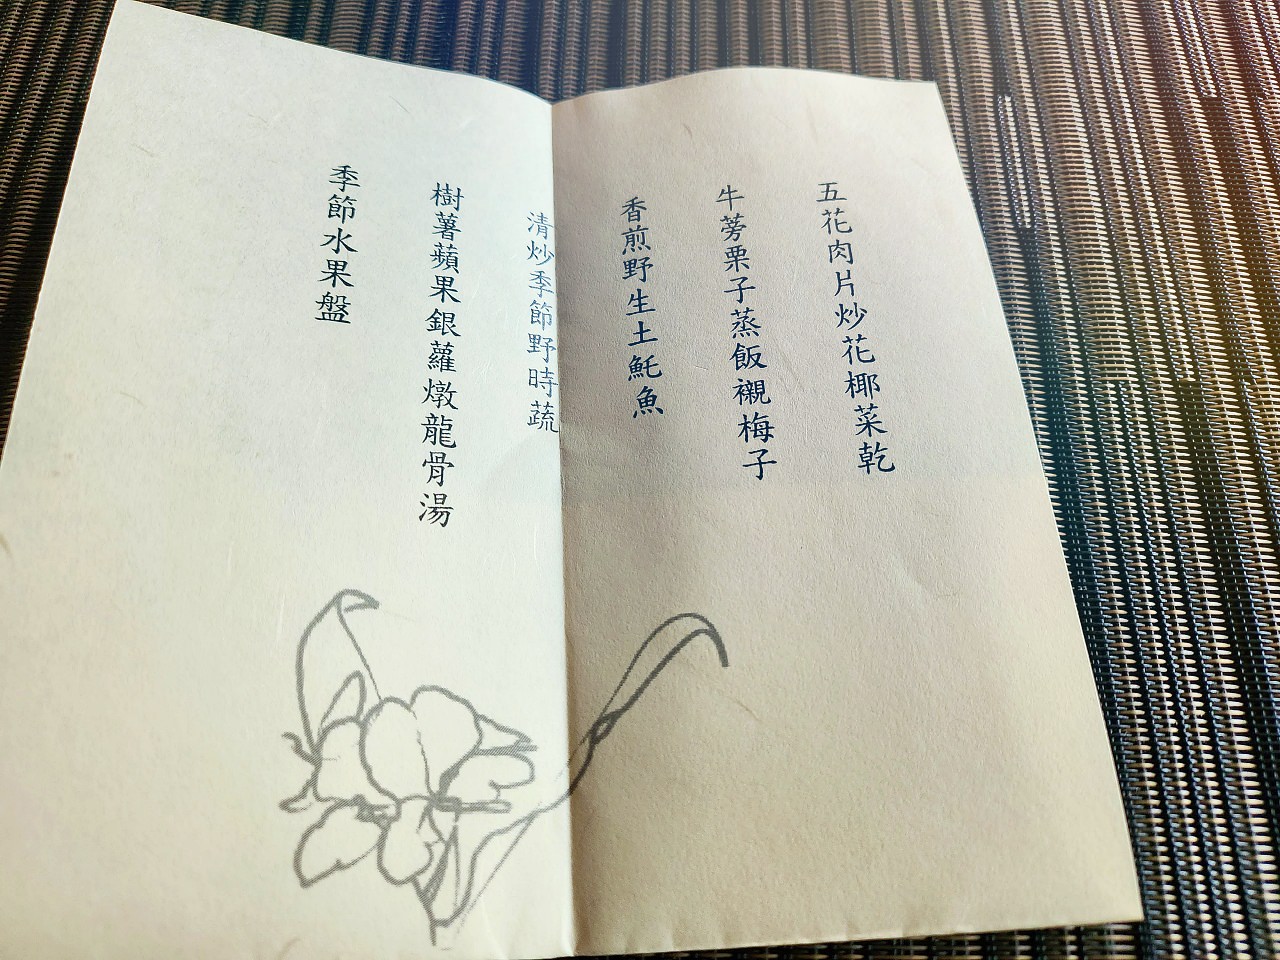 五花肉片炒花椰菜乾
牛蒡栗子蒸飯襯梅子
香煎野生土魠魚
清炒季節野時蔬
樹薯蘋果銀蘿燉龍骨湯
季節水果盤